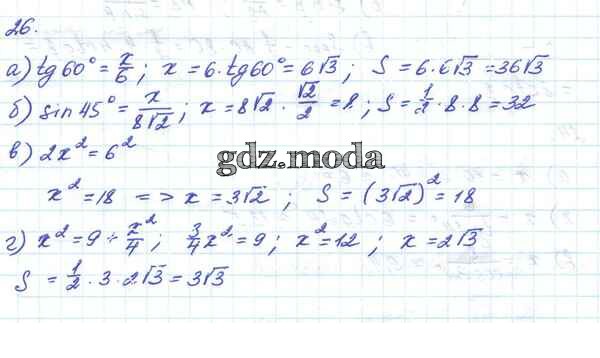 26.
а) tg60° = x/6; x = 6·tg60° = 6√3; S = 6·6√3 = 36√3
б) sin45° = x/8√2; x = 8√2·√2/2 = 8; S = 1/2·8·8 = 32
в) 2x² = 6²
gdz.moda
x² = 18 => x = 3√2; S = (3√2)² = 18
г) x² = 9 + x²/4; 3/4x² = 9; x² = 12; x = 2√3
S = 1/2·3·2√3 = 3√3